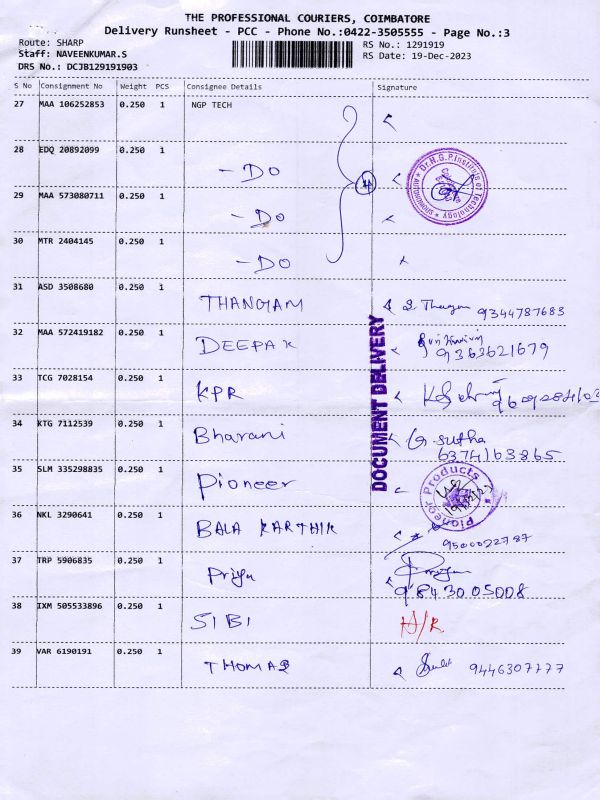 THE PROFESSIONAL COURIERS, COIMBATORE
Delivery Runsheet - PCC - Phone No.:0422-3505555 - Page No.:3
Route: SHARP
Staff: NAVEENKUMAR.S
DRS No.: DCJB129191903
RS No.: 1291919
RS Date: 19-Dec-2023
S No Consignment No Weight PCS Consignee Details Signature
27 MAA 106252853 0.250 1 NGP TECH
28 EDQ 20892099 0.250 1
- DO
Dr.N.G.P.Institute of Technology
29 MAA 573080711 0.250 1
- DO
30 MTR 2404145 0.250 1
- DO
31 ASD 3508680 0.250 1
THANGAM 9344787683
32 MAA 572419182 0.250 1
DEEPAK 9363621679
DOCUMENT DELIVERY
33 TCG 7028154 0.250 1
KPR
34 KTG 7112539 0.250 1
Bharani G. sutha
6374163865
35 SLM 335298835 0.250 1
Pioneer
Pioneer Products
36 NKL 3290641 0.250 1
BALA KARTHIK
9500022787
37 TRP 5906835 0.250 1
Priya Priya
9843005008
38 IXM 505533896 0.250 1
SIBI
39 VAR 6190191 0.250 1
THOMAS 9446307777